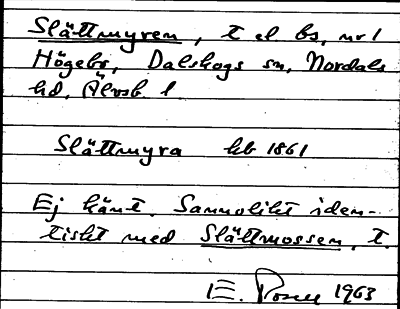 Slättmyren, t el bs, nr 1
Högebo, Dalskogs sn, Nordals
hd, Älvsb. l.
Slättmyra hb 1861
Ej känt. Sannolikt iden-
tiskt med Slättmossen, t.
E. 1963